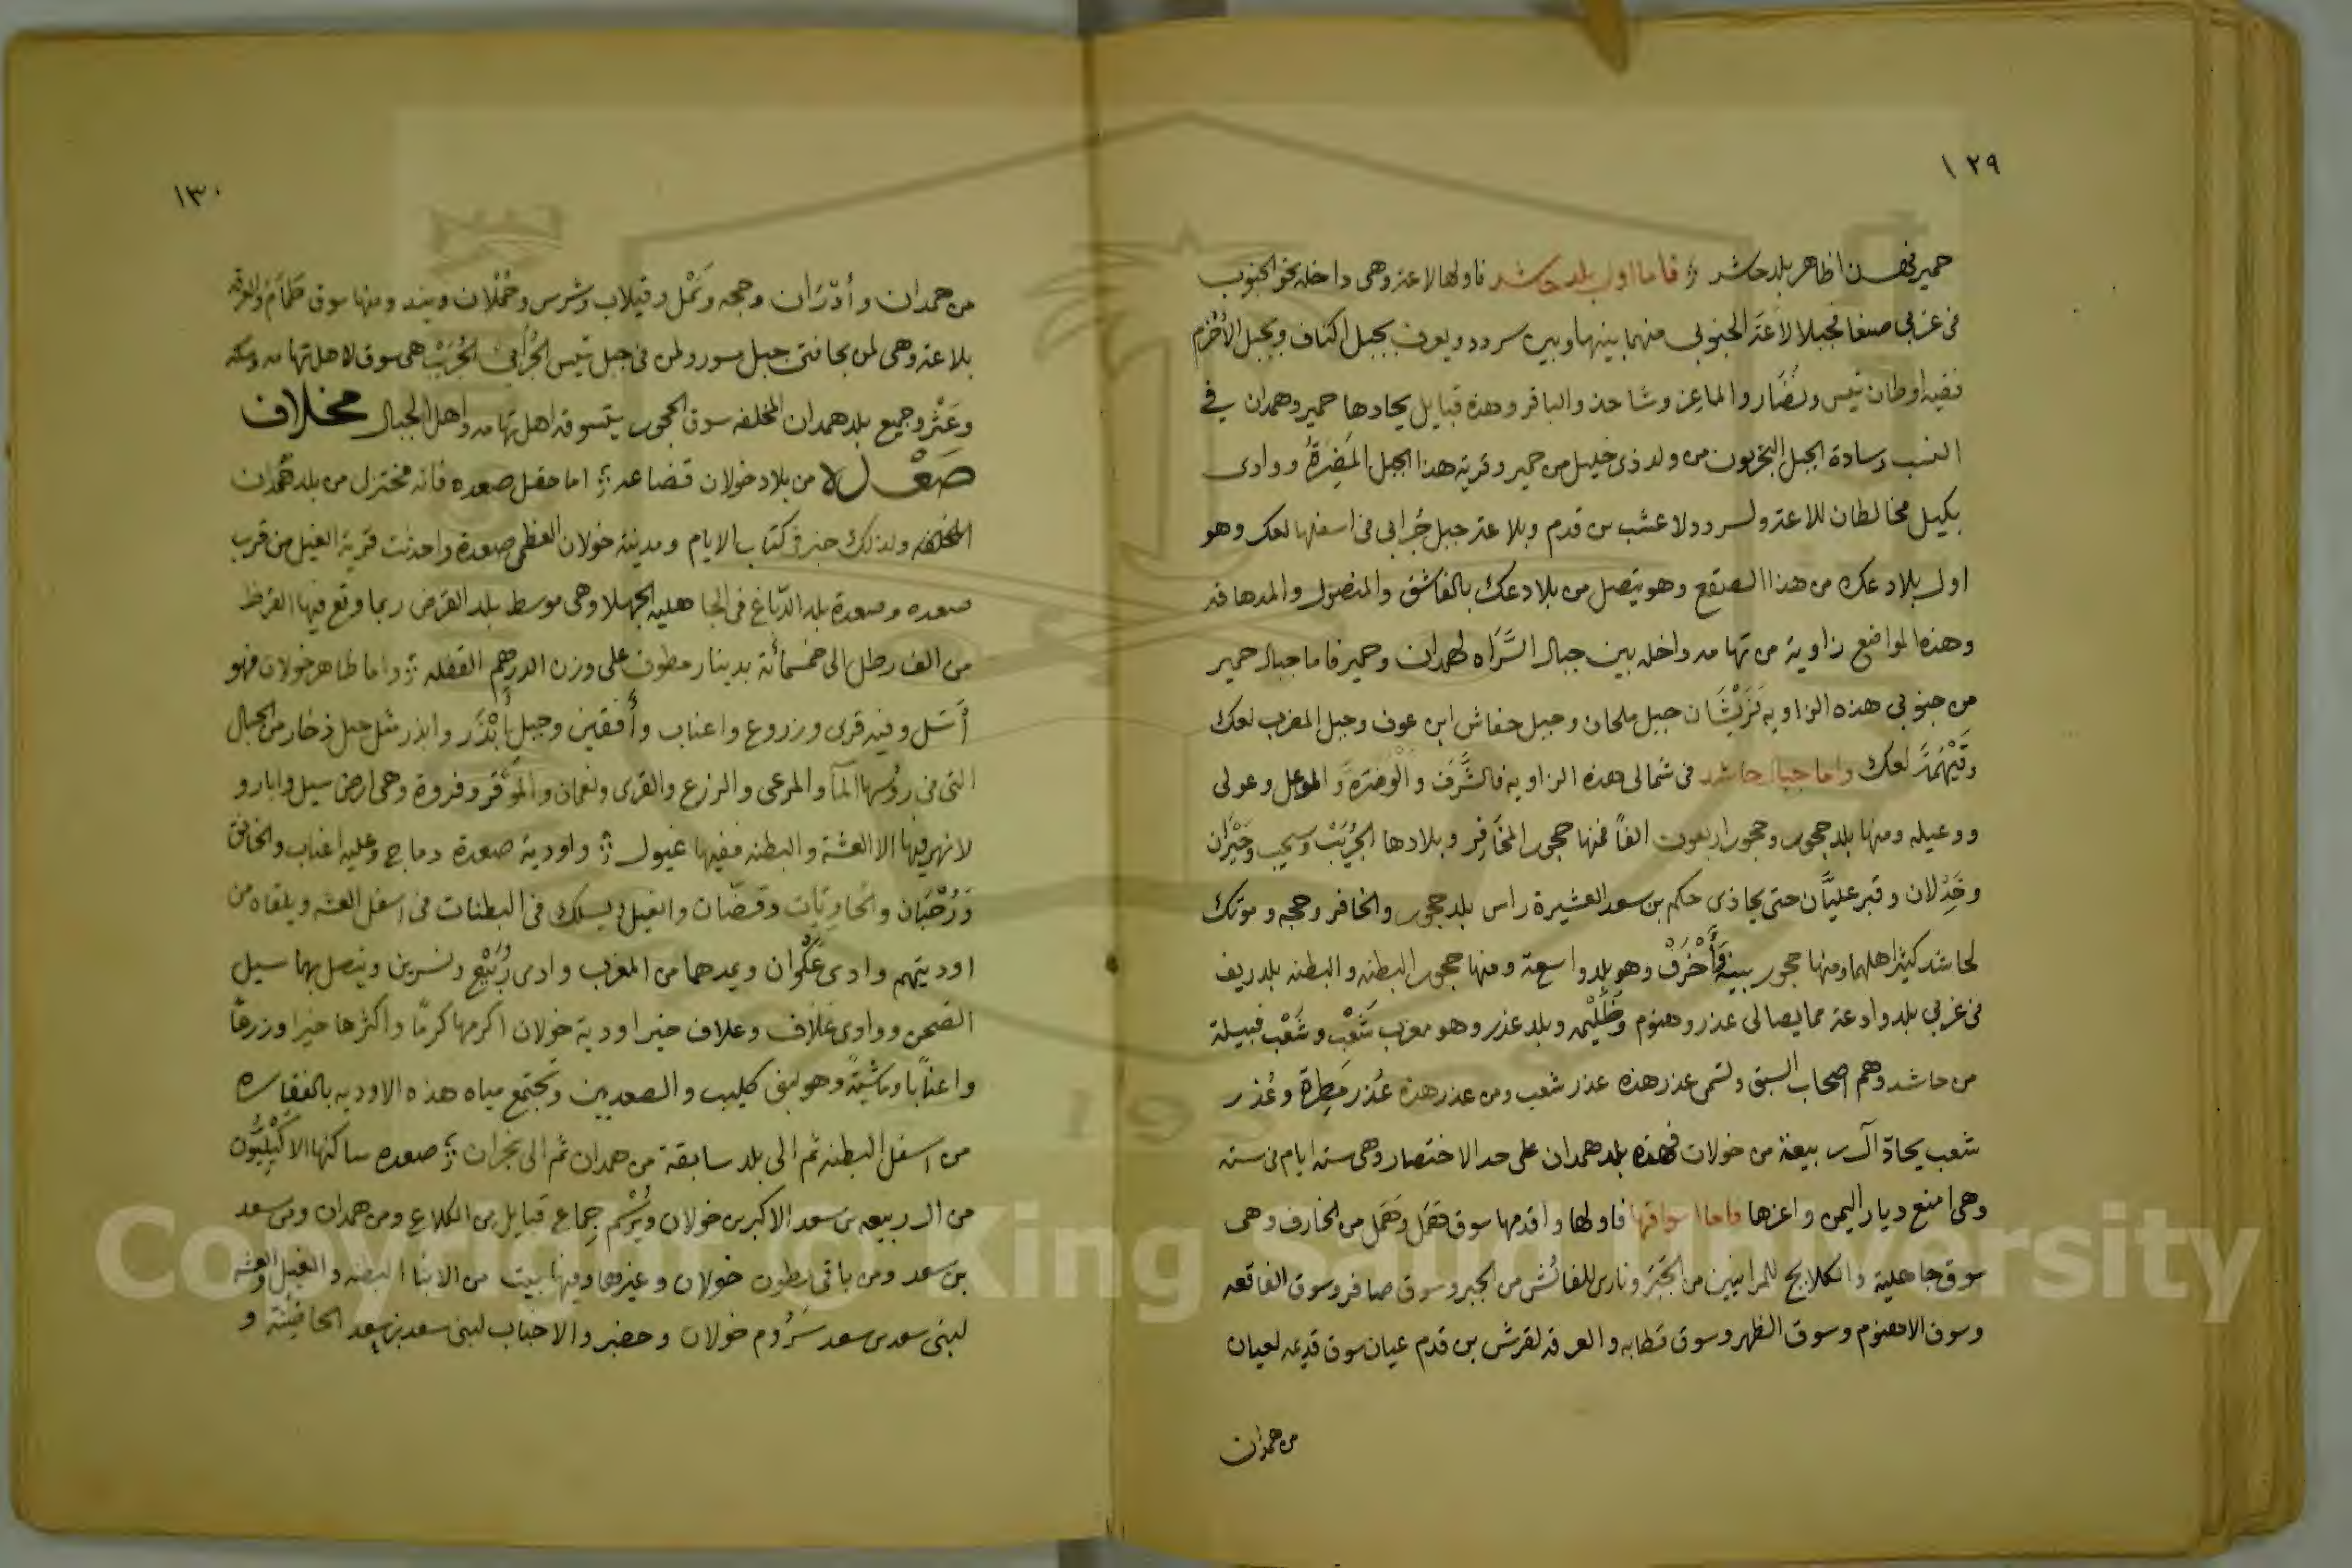 ١٢٩
حمير فهـذا ظاهر بلد حاشد فاما اول بلد حاشد فاولها لاعة وهى داخلة نحو الجنوب
فى غربى صنعا فجبلا لاعة الجنوبى منهما بينها وبين سردد ويعرف بجبل اكتاف وبجبل الأخرم
ففيه اوطان تيس ونُضَار والماعز وشاحذ والباقر وهذه قبايل يحادها حمير وهمدان فى
النسب وسادة الجبل البحريون من ولد ذى خليل من حمير وقرية هذا الجبل المَضِرَةُ ووادى
بكيل مخالطان للاعة ولسردد ولا عشب بن قدم وبلاعة جبل جُرابى فى اسفلها لعك وهو
اول بلاد عك من هذا الصقع وهو يتصل من بلاد عك بالفاشق والمنصول والمدهافة
وهذه المواضع زاوية من تهامه داخله بين جبال السَّرَاه لهمدان وحمير فاما جبال حمير
من جنوبى هذه الزاويه فَرَيْشَان جبل ملحان وجبل حفاش ابن عوف وجبل المضرب لعك
وقَيْهَمَة لعك واما جبال حاشد فى شمالى هذه الزاويه فالشَّرَف والوَضَرَة والموعل وعولى
ووعيله ومنها بلد حجور وحجور اربعون الفاً فمنها حجور المخَافِر وبلادها الجُرَيْبُ وسحيب وحَيْرَان
وخَذِلان وقبر عليَّان حتى يحاذى حكم بن سعد العشيرة راس بلد حجور والخافر وحجه وموتك
لحاشد كثير اهلهما ومنها حجور بينة وَأَخْرَفُ وهو بلد واسعة ومنها حجور البطنه والبطنه بلد ريف
فى غربى بلد وادعة مما يصالى عذر وهنوم وظُلَيْمه وبلد عذر وهو مغرب شَعْب وشَعْب قبيلة
من حاشد وهم اصحاب السبق ولتسمى عذر هذه عذر شعب ومن عذر هذه عُذر مَطِرَة وعُذر
شعب يحادّ آل ربيعة من خولان فهذه بلد همدان على حد الاختصار وهى ستة ايام فى ستة
وهى امنع ديار اليمن واعزها فاما اسواقها فاولها واقدمها سوق هَمَل وهَمَل من الخارف وهى
سوق جاهلية والكلابح للمرانيين من الجَبَر ونارى للفائش من الجبر وسوق صافر وسوق الفاقعه
وسوق الاهنوم وسوق الظهر وسوق قطابه والعرقه لقرش بن قدم عيان سوق قديمه لعيان
من همدان
١٣٠
من همدان وأدْرَان وحجه ونَمْل وقيلاب وشرس وحُمْلان وبيند ومنها سوق طَمَام والعرقة
بلاعة وهى لمن بحافتى جبل مسور ولمن فى جبل تيس الجُرَابى الجُرَيْبُ هى سوق لاهل تهامه ومكه
وعَثْر وجميع بلد همدان المخلفه سوق الحجور يتسوقه اهل تهامه واهل الجبال مخلاف
صَعْدة من بلاد خولان قضاعه اما حقل صعده فانه مختزل من بلد همدان
المخلفه ولذلك خبر فى كتاب الايام ومدينة خولان العظمى صعدة واحدثت قرية الغيل من قرب
صعده وصعدة بلد الدّباغ فى الجاهلية الجهلا وهى موسط بلد القرض ربما وقع فيها القرظ
من الف رطل الى خمسمائة بدينار مطوف على وزن الدرهم القفله واما ظاهر خولان فهو
أَسَل وفيه قرى وزروع واعناب وأُفقين وجبل أَبْذَر وابذر مثل جبل ذخار من الجبال
التى فى رؤسها المآ والمرعى والزرع والقرى ونعمان والمَوْقَر وفروة وهى ارض سيل وابار و
لا نهر فيها الا العشة والبطنه ففيها غيول واودية صعدة دماج وعليه اعناب والخانق
وَرُحْبَان والحَاوِيَات وقضَّان والغيل ويسلك فى البطنات فى اسفل العشه ويلقاه من
اوديتهم وادى عَكْوان ويمدهما من المغرب وادى رُبَيْع ونسرين ويتصل بهما سيل
الضحن ووادى عَلاف وعلاف خير اودية خولان اكرمها كرمًا واكثرها خيرا وزرعًا
واعنابا وماشيةً وهو لبنى كليب والصعديين وتجتمع مياه هذه الاوديه بالفقاره
من اسفل البطنه ثم الى بلد سابقة من همدان ثم الى نجران صعده ساكنها الاكَيْلِيُّون
من ال ربيعه بن سعد الاكبر بن خولان ويُرْسُم جماع قبايل من الكلاع ومن همدان ومن سعد
بن سعد ومن باقى بطون خولان وغيرها وفيها بيت من الابنا البطنه والغيل والعشه
لبنى سعد بن سعد سَرُوم خولان وحضبر والاخباب لبنى سعد بن سعد الحاضنة و